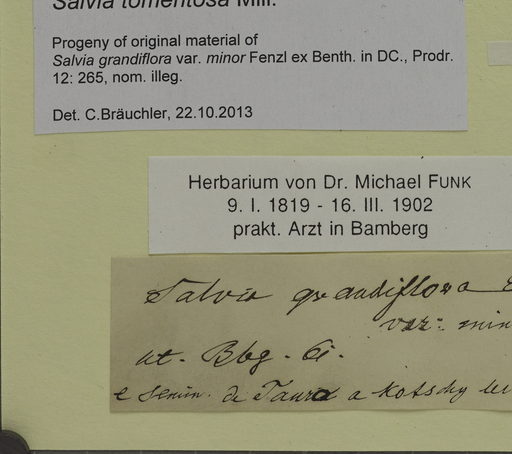 Salvia tomentosa Mill.
Progeny of original material of
Salvia grandiflora var. minor Fenzl ex Benth. in DC., Prodr.
12: 265, nom. illeg.
Det. C.Bräuchler, 22.10.2013
Herbarium von Dr. Michael FUNK
9. I. 1819 - 16. III. 1902
prakt. Arzt in Bamberg
Salvia grandiflora
var: min
Bbg.
e semin. de Tauro a Kotschy